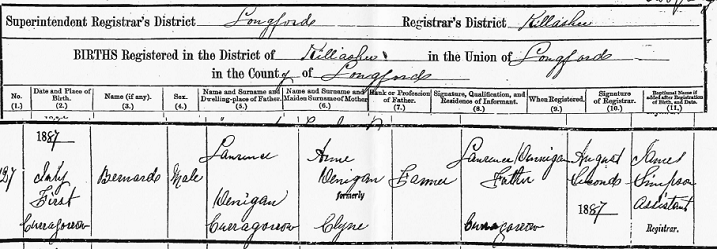 Superintendent Registrar's District Longford Registrar's District Killashee
BIRTHS Registered in the District of Killashee in the Union of Longford
in the County of Longford
No. (1.) Date and Place of Birth. (2.) Name (if any). (3.) Sex. (4.) Name and Surname and Dwelling-place of Father. (5.) Name and Surname and Maiden Surname of Mother. (6.) Rank or Profession of Father. (7.) Signature, Qualification, and Residence of Informant. (8.) When Registered. (9.) Signature of Registrar. (10.) Baptismal Name if added after Registration of Birth, and Date. (11.)
1887
July
First
Curragorrow
Bernard
Male
Laurence
Denigan
Curragorrow
Anne
Denigan
formerly
Clyne
Farmer
Laurence Dennigan
Father
Curragorrow
August
Second
1887
James
Simpson
Assistant
Registrar.